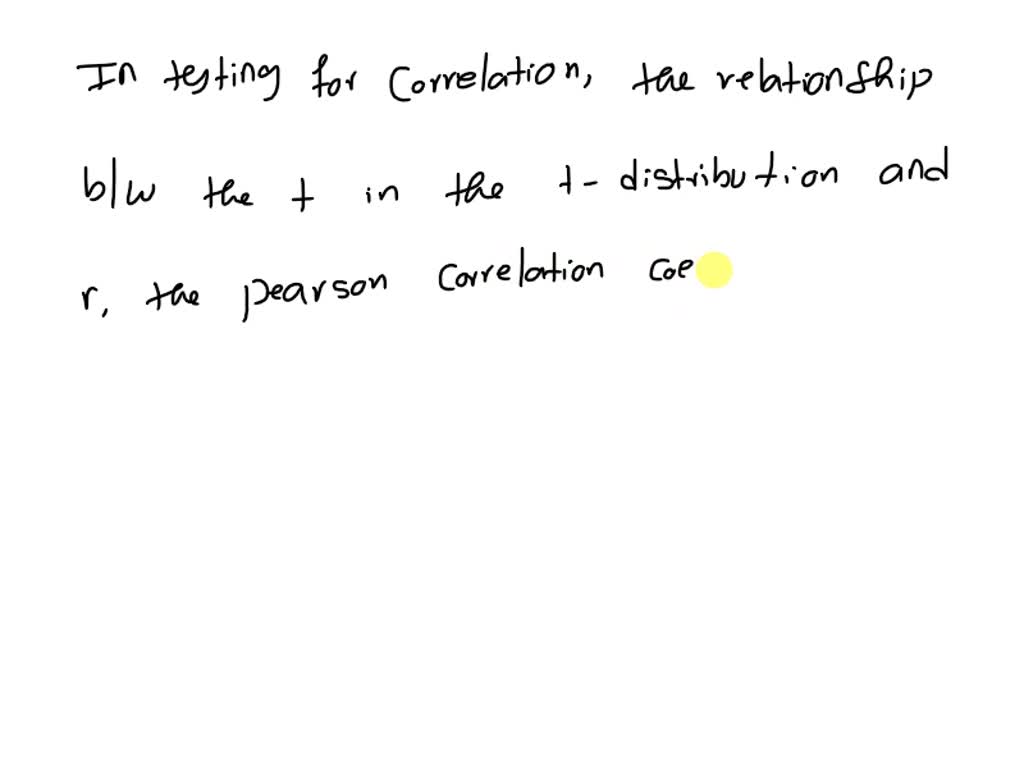 In testing for Correlation, the relationship
b/w the t in the t-distribution and
r, the pearson correlation coe